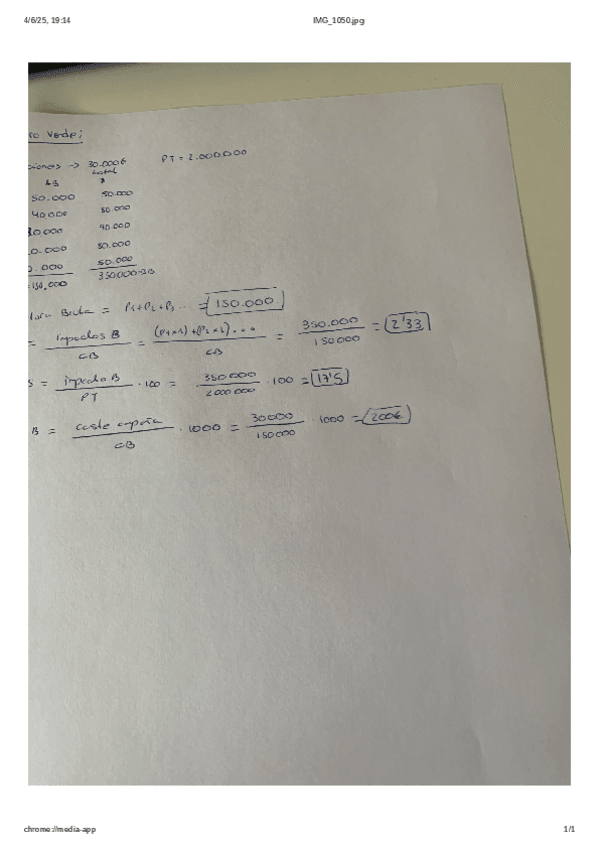 4/6/25, 19:14
IMG_1050.jpg
ro Verde:
ciones → 30.000€ PT = 2.000.000
total
50.000 50.000
40.000 80.000
30.000 90.000
0.000 80.000
0.000 50.000
=150.000 350.000=IB
Bruta = P1+P2+P3... = 150.000
= impactos B / CB = (P1x1)+(P2x2)... / CB = 350.000 / 150000 = 2'33
S = impacto B / PT · 100 = 350000 / 2000000 · 100 = 17'5
B = coste / CB · 1000 = 30000 / 150000 · 1000 = 200€
chrome://media-app
1/1